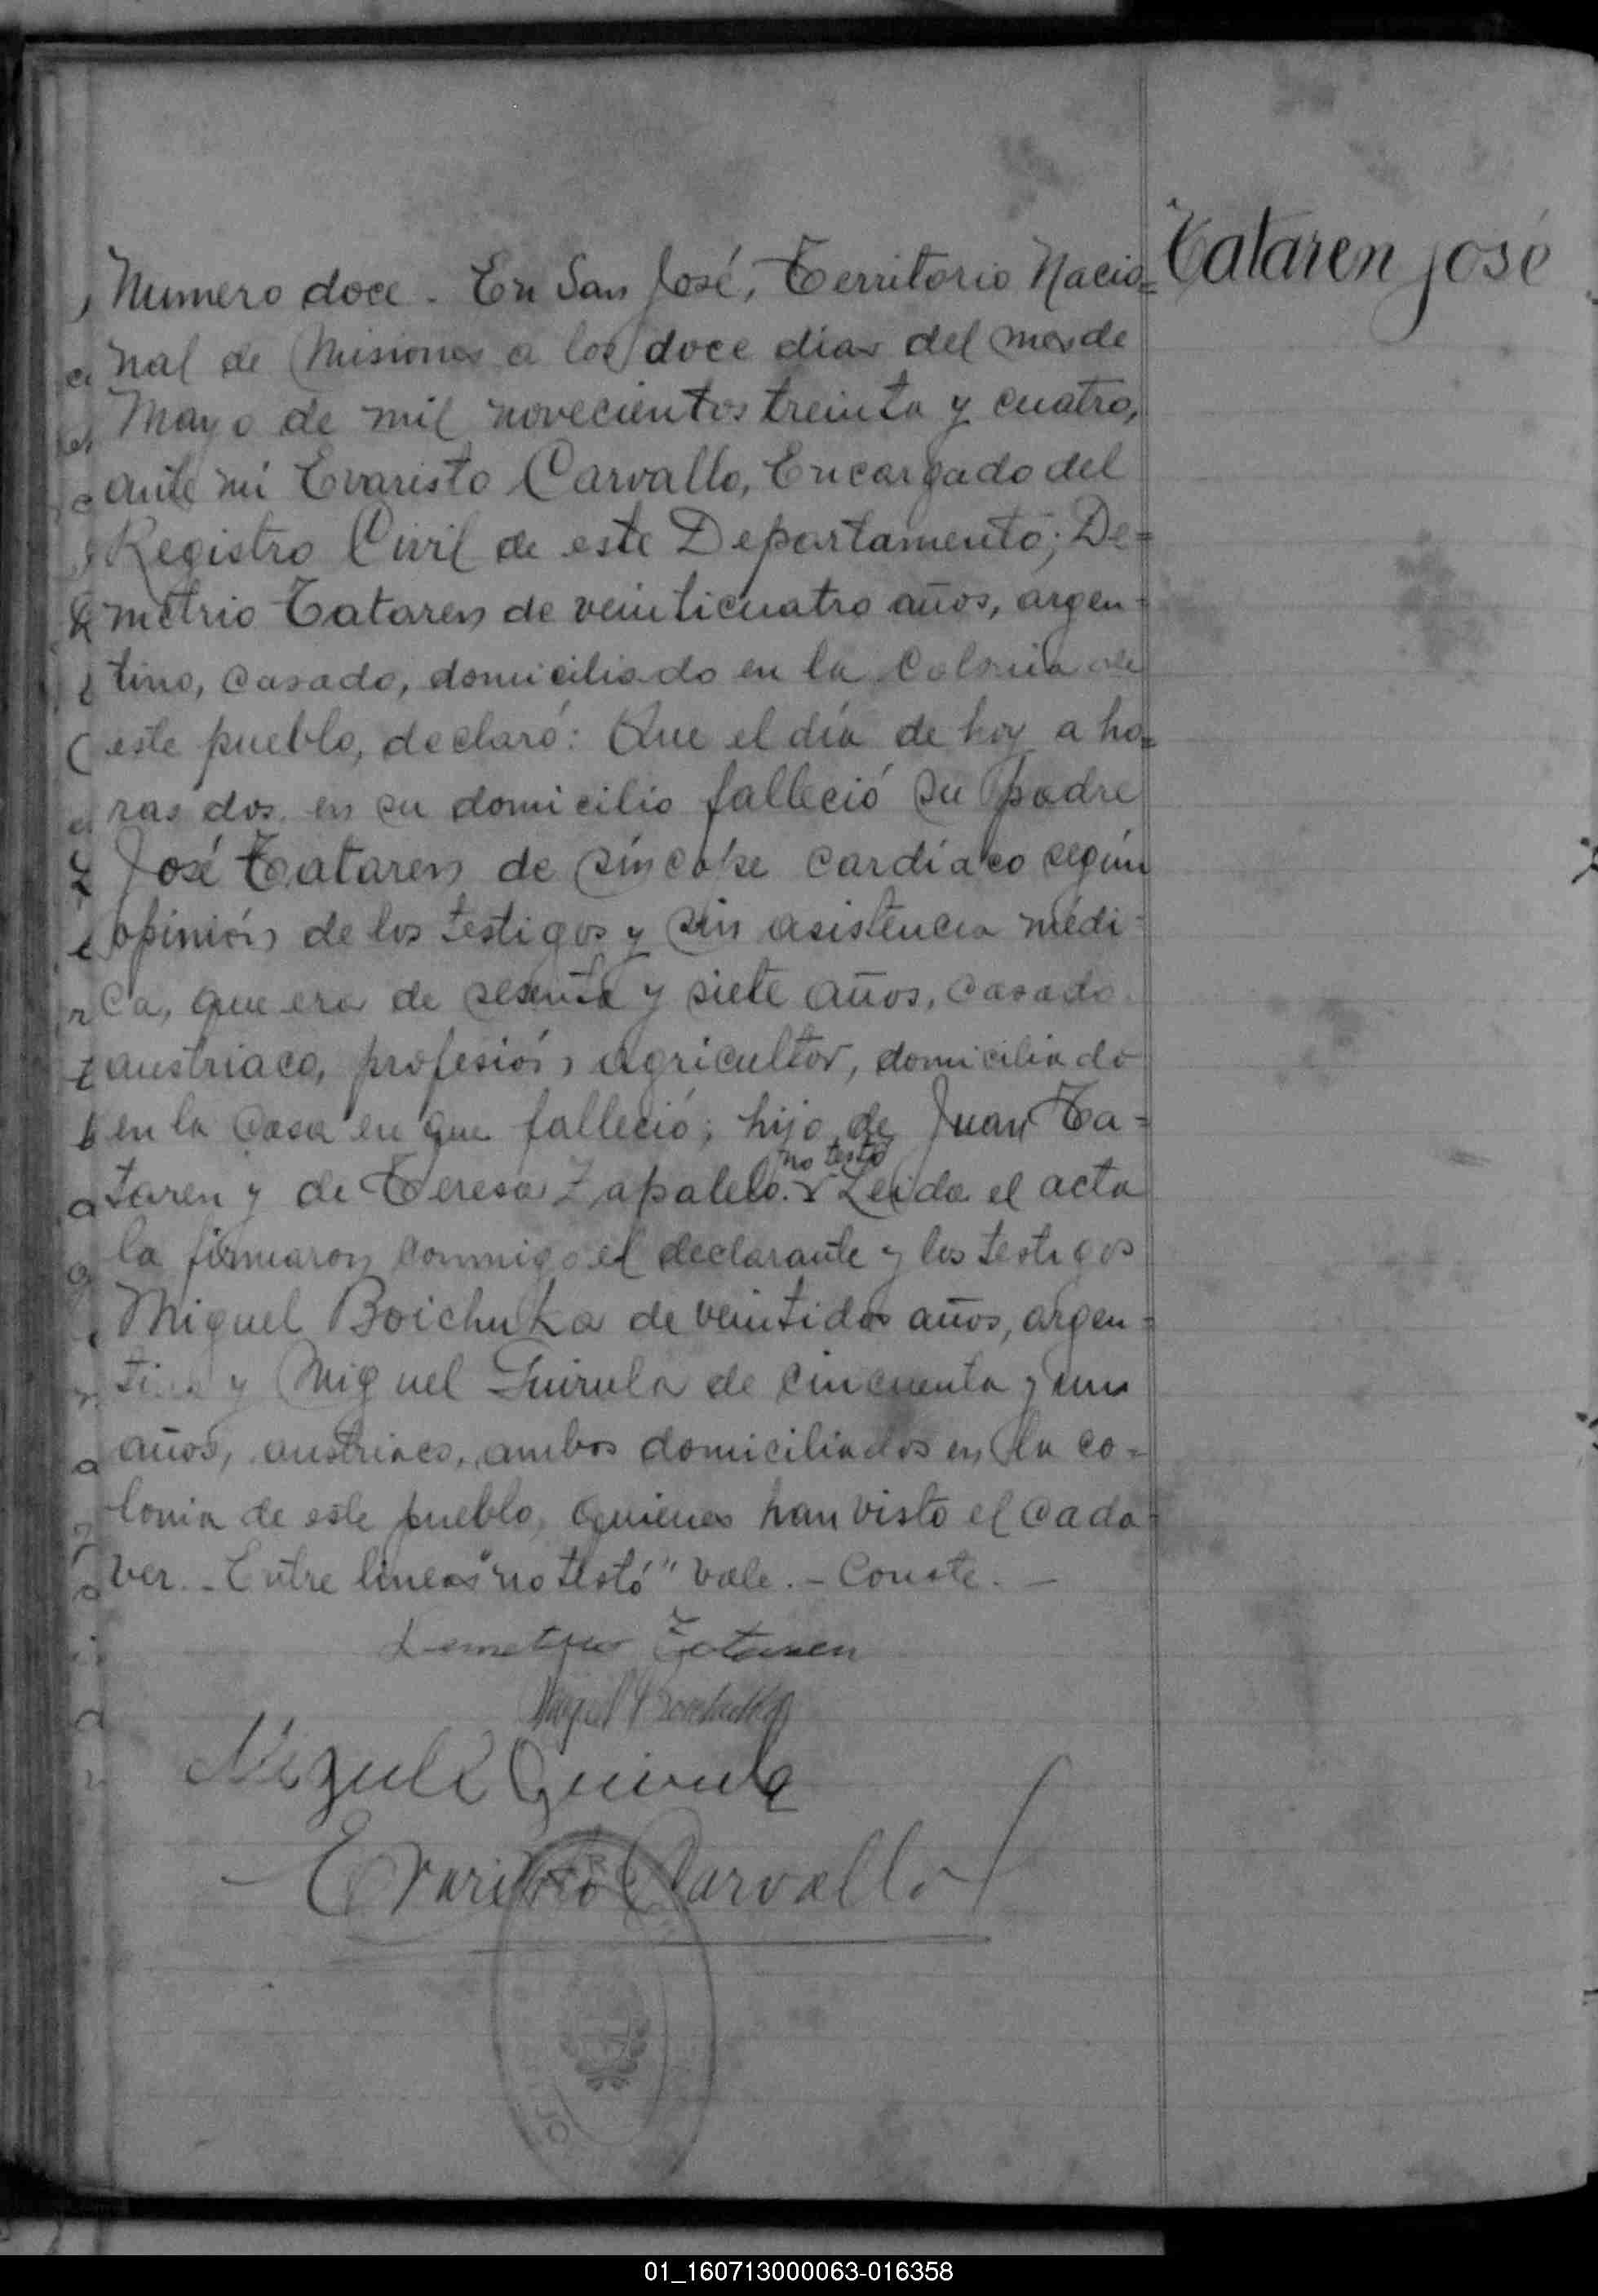 Tataren José
Numero doce. En San José, Territorio Nacio=
nal de Misiones a los doce dias del mes de
Mayo de mil novecientos treinta y cuatro,
ante mi Evaristo Carvallo, Encargado del
Registro Civil de este Departamento; De=
metrio Tataren de veinticuatro años, argen=
tino, casado, domiciliado en la Colonia de
este pueblo, declaró: Que el día de hoy a ho=
ras dos en su domicilio falleció su padre
José Tataren de síncope cardíaco según
opinión de los testigos y sin asistencia médi=
ca, que era de sesenta y siete años, casado
austriaco, profesión agricultor, domiciliado
en la casa en que falleció; hijo de Juan Ta=
no testó
taren y de Teresa Zapalelo. Leida el acta
la firmaron conmigo el declarante y los testigos
Miguel Boichuka de veintidos años, argen=
tino y Miguel Guirula de cincuenta y un
años, austriaco, ambos domiciliados en la co=
lonia de este pueblo, quienes han visto el cada=
ver. - Entre lineas "no testó" vale. - Conste. -
Demetrio Tataren
Miguel Boichuka
Migule Guirula
Evaristo Carvallo
01_160713000063-016358